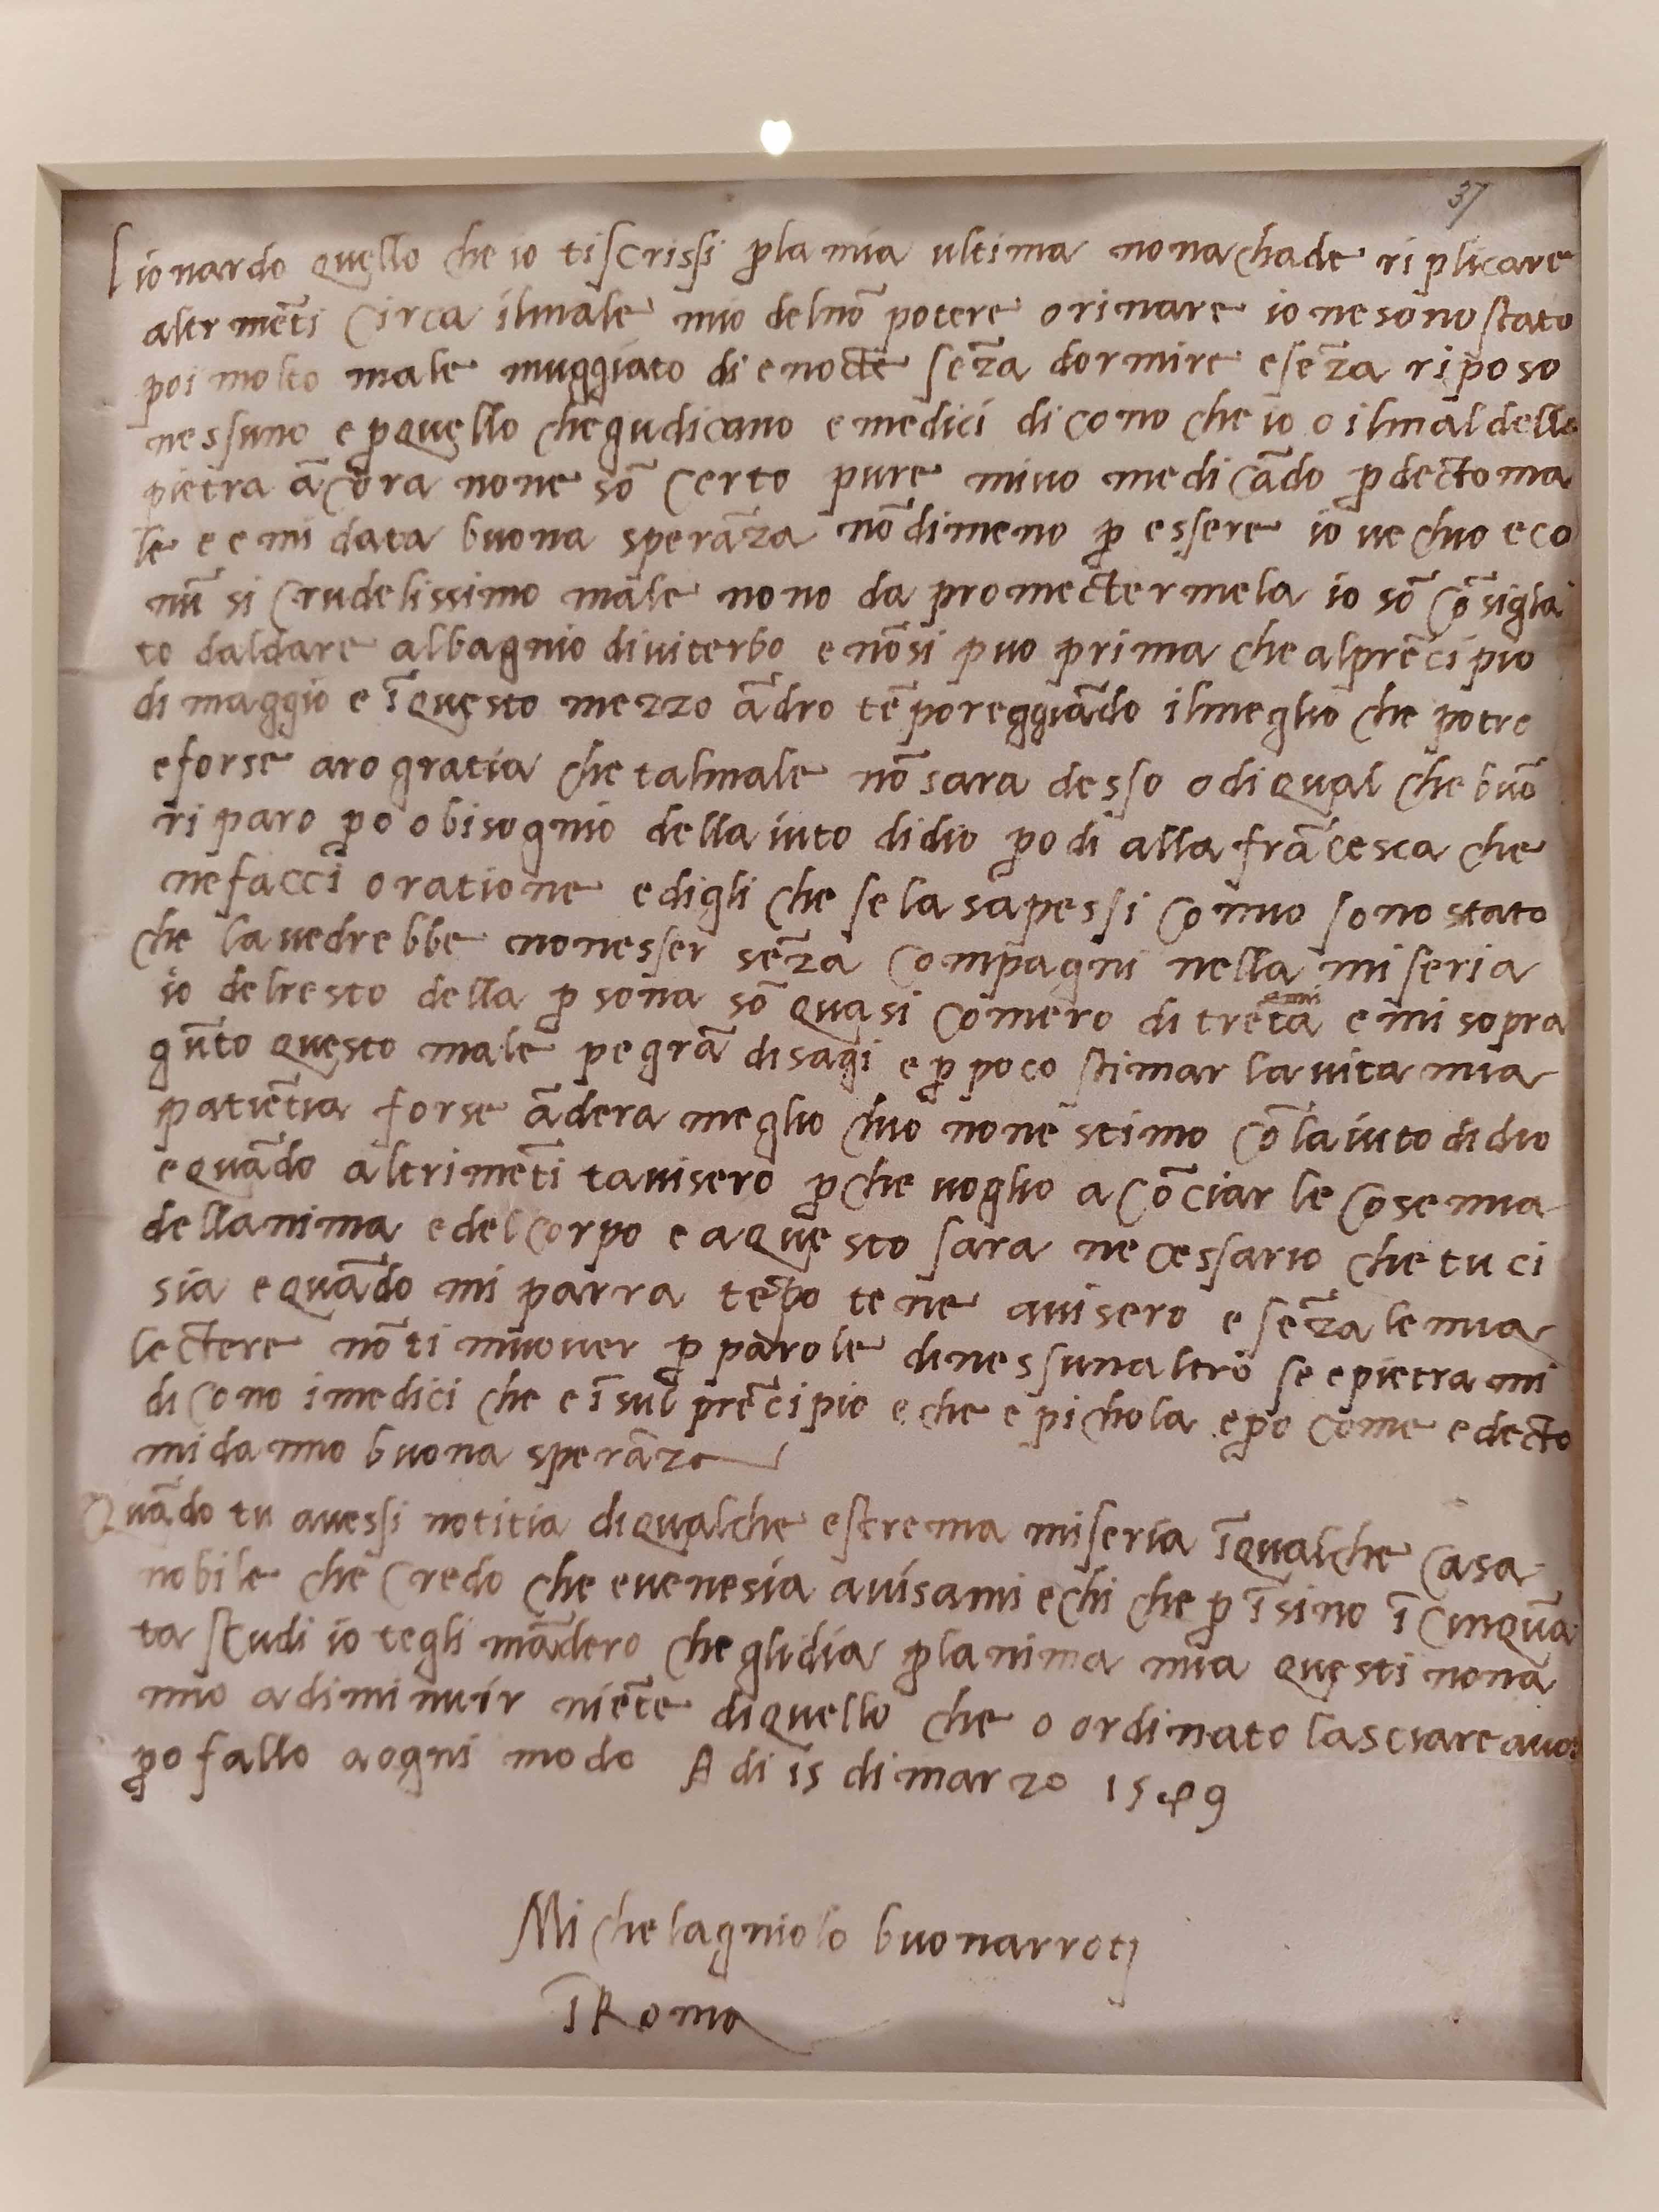 37
lionardo quello che io tiscrissi p̱ la mia ultima nonachade riplicare
altrimēti circa ilmale mio delnō potere orinare io nesonostato
poi molto male muggiato di enocte sēza dormire esēza riposo
nessuno e p̱quello chegudicano emedici dicono che io o ilmaldella
pietra ācora none sō certo pure miuo medicādo p̱dectoma
le e emi data buona sperāza nōdimeno p̱ essere io uechio eco
nū si crudelissimo male nono da promectermela io sō cōsiglia
to daldare albagnio diuiterbo enōsi puo prima che alprēcipio
di maggio e ī questo mezzo ādro tēporeggiādo ilmeglio che potro
eforse aro gratia che talmale nō sara desso o di qual che buō
riparo p̱o o bisognio della iuto didio p̱o di alla frācesca che
ne facci oratione edigli che se la sapessi comio sono stato
che la uedrebbe nonesser sēza compagni nella miseria
io delresto della p̱sona sō quasi comero di trēta anni emi sopra
gūto questo male pe grā disagi e p̱ poco stimar lauita mia
patiētia forse ādera meglio chio none stimo cō la iuto didio
e quādo altrimēti tauisero p̱che uoglio acōciar le cose mia
dellanima edel corpo e a questo sara necessario che tu ci
sia e quādo mi parra tēpo te ne auisero e sēza le mia
lectere nō ti muouer p̱ parole dinessunaltro se epietra mi
dicono imedici che e ī sul prēcipio e che e pichola e p̱o come e decto
mi danno buona sperāza
Quādo tu auessi notitia diqualche estrema miseria ī qualche casa
nobile che credo che euenesia auisami echi che p̱ īsino ī cinquā
ta scudi io tegli mādero che glidia p̱ lanima mia questi nonā
nno adiminuir niēte diquello che o ordinato lasciare auoi
p̱o fallo aogni modo A di 15 dimarzo 1549
Michelagniolo buonarroti
ī Roma